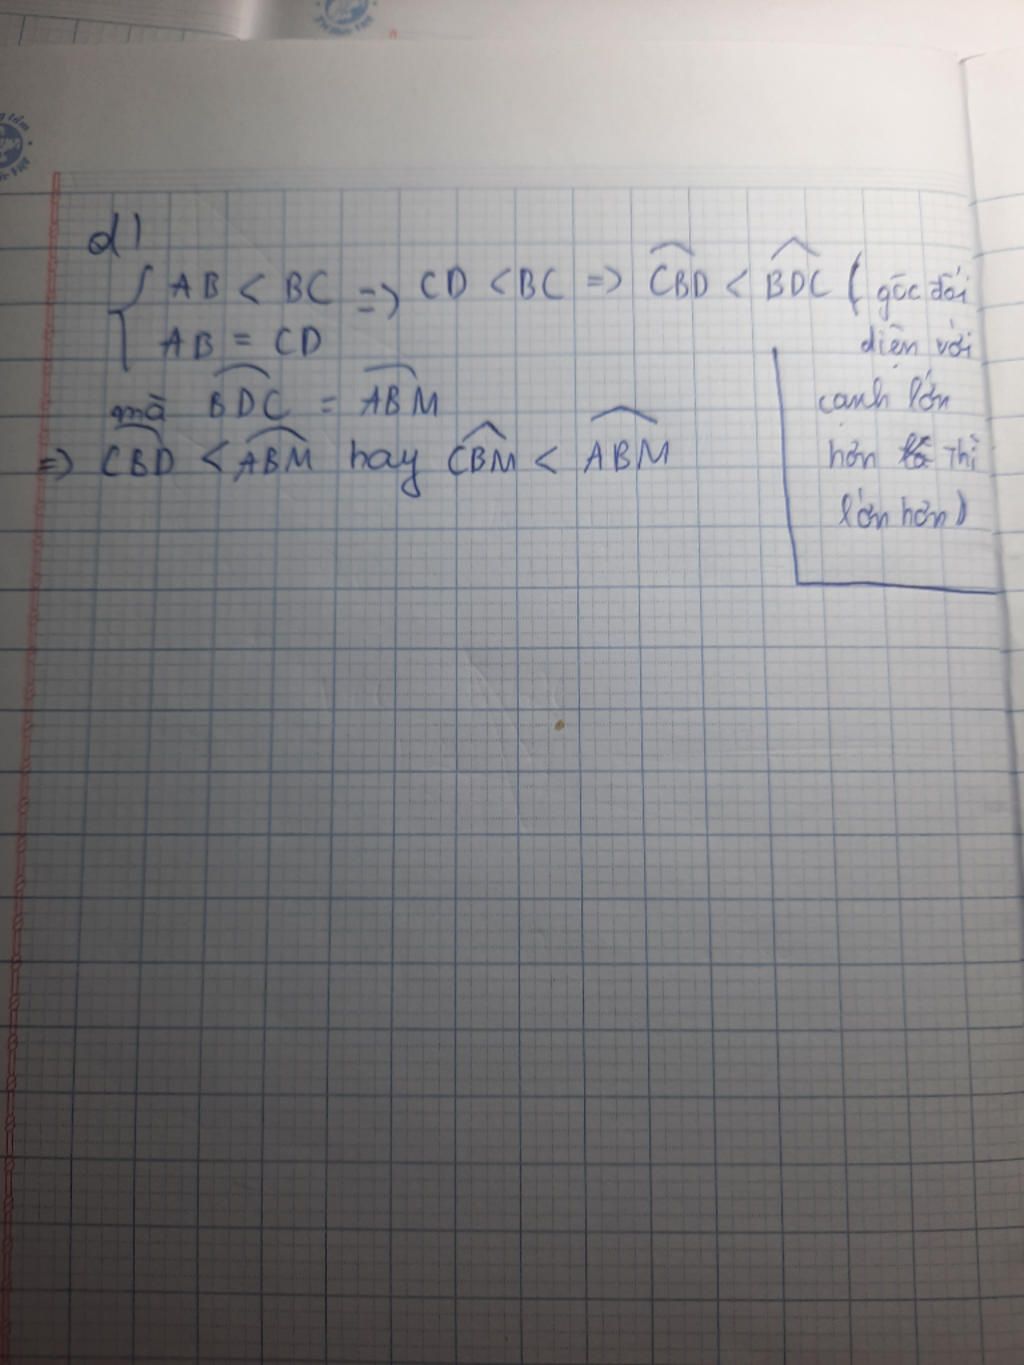 d)
{ AB < BC => CD < BC => \widehat{CBD} < \widehat{BDC} ( góc đối
AB = CD diện với
mà \widehat{BDC} = \widehat{ABM} cạnh lớn
=> \widehat{CBD} < \widehat{ABM} hay \widehat{CBM} < \widehat{ABM} hơn thì
lớn hơn)